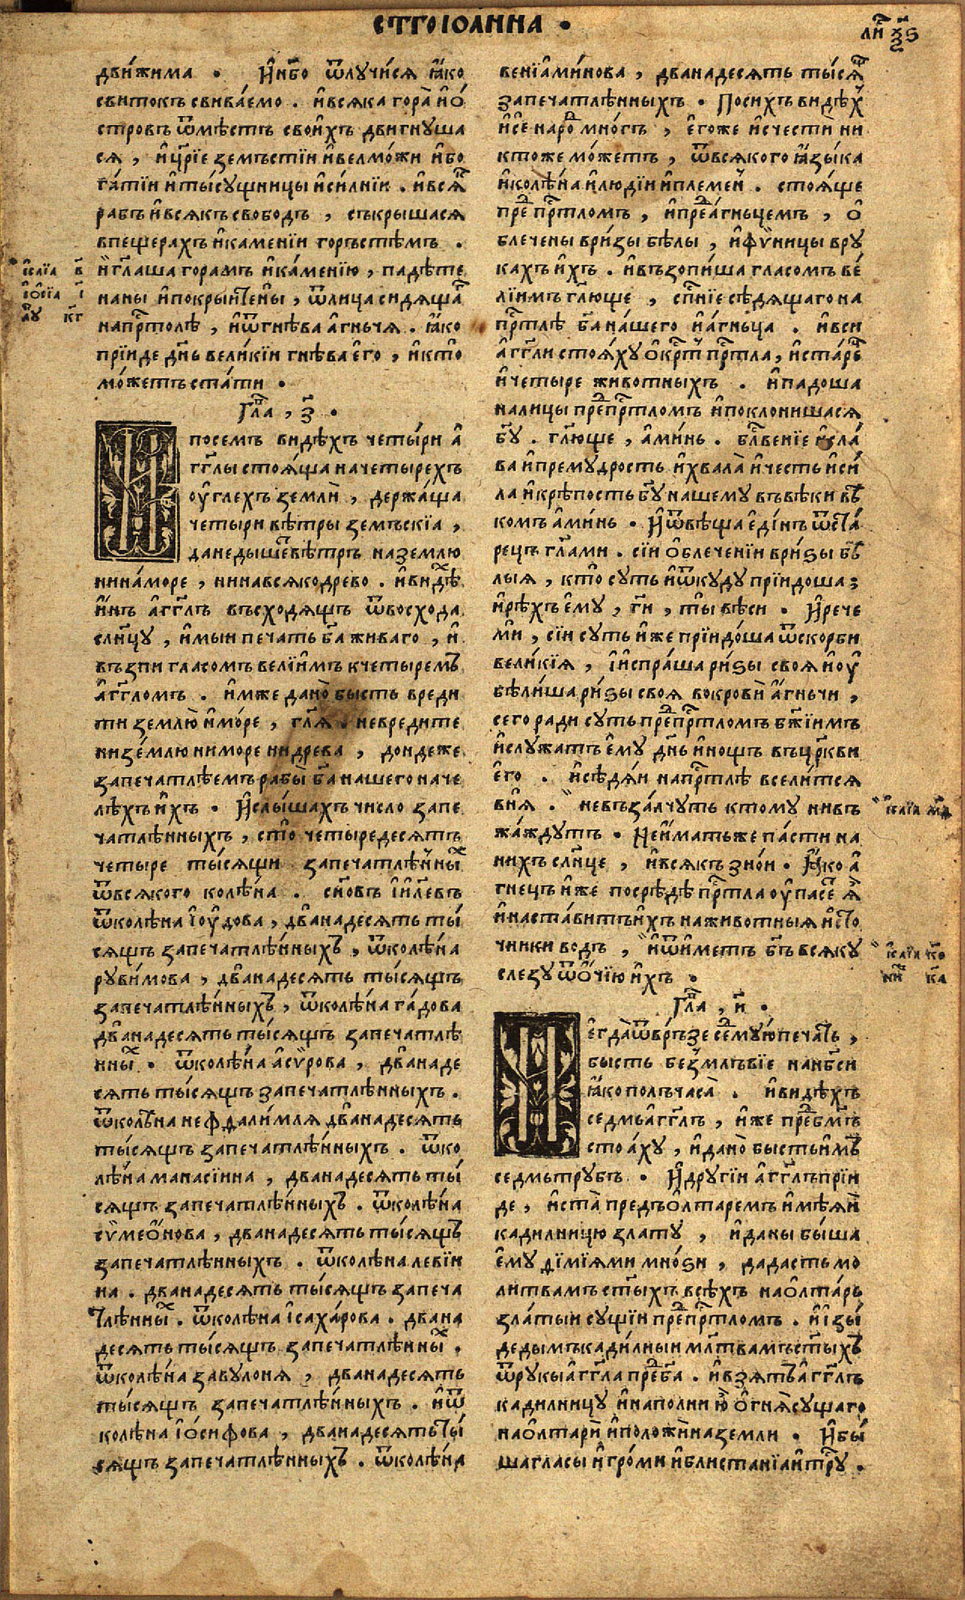 ст҃го іоанна ·
лі҇ х҃ѕ҃
движима · И҆ нб҃о ѿлꙋчи́сѧ ꙗ҆ко
свитокъ свива́емо . и҆ всѧка гора̀ и҆ ѻ҆́
стровъ ѿ мѣстъ свои́хъ двигнꙋша
сѧ , и҆ цр҃їе земъстїи и҆ велмо́жи и҆ бо
га́тїи и҆ ты́сꙋщницы и҆ си́лнїи . и҆ всѧ́
рабъ и҆ всѧкъ свободъ , съкрышасѧ
в пещерахъ и҆ каменїи горъстѣмъ .
и҆ гл҃аша горамъ и҆ ка́менїю , падѣте
на ны и҆ покры́ите ны , ѿ лица сидѧща҇
на прⷭ҇толѣ , и҆ ѿ гнѣва а҆́гньчѧ . ꙗ҆ко
прїиде дн҃ь вели́кїи гнѣва е҆го̀ , и҆ кто̀
мо́жетъ ста́ти ·
Гла҇ , з҃ ·
И посемъ видѣхъ четы́ри а҆́
гг҃лы стоѧ́ща на четырехъ
ѹ҆́глехъ землѝ , держа́ща
четыри вѣтры земъскїѧ ,
да не дышетъ вѣтръ на землю
ни на мо́ре , ни на всѧко древо . и҆ видѣ҇
и҆́нъ а҆́гг҃лъ въсходѧщъ ѿ восхода
слн҃цꙋ , и҆мы́и печать бг҃а жива́го , и҆
възпи гласомъ велїимъ к четыремъ
а҆́гг҃ломъ . и҆́мже дано̀ бысть вреди
ти землю̀ и҆ мо́ре , гл҃ѧ . не вредите
ни зе́млю ни море ни древа , дондеже
запечатлѣемъ рабы̀ бг҃а нашего на че
лѣхъ и҆́хъ · И҆ слы́шахъ число запе
чатлѣ́нныхъ , сто̀ четыредесѧтъ
четыре ты́сѧщи запечатлѣ́нны҇
ѿ всѧкого колѣ́на . сн҃овъ і҆и҃левъ
ѿ колѣна і҆ѹ́дова , дванадесѧть ты́
сѧщъ запечатлѣ́нныхъ , ѿ колѣ́на
рꙋви́мова , дванадесѧть ты́сѧщъ
запечатлѣ́нныхъ , ѿ колѣна га́дова
дванадесѧть ты́сѧщъ запечатлѣ́
нны҇ . ѿ колѣна а҆си́рова , дванаде
сѧть ты́сѧщъ запечатлѣ́нныхъ .
ѿ колѣна нефдали́млѧ дванадесѧть
ты́сѧщъ запечатлѣ́нныхъ . ѿ ко
лѣна манасїина , дванадесѧть ты́
сѧщъ запечатлѣ́нныхъ . ѿ колѣна
сѷмео́нова , дванадесѧть ты́сѧщъ
запечатлѣ́нныхъ . ѿ колѣна леві́и
на . дванадесѧть ты́сѧщъ запеча
тлѣ́нны҇ . ѿ колѣна і҆саха́рова . двана
десѧть ты́сѧщъ запечатлѣ́нны҇ .
ѿ колѣна завꙋлонѧ , дванадесѧть
ты́сѧщъ запечатлѣ́нныхъ . и҆ ѿ
колѣна і҆о́сифова , дванадесѧть ты́
сѧщъ запечатлѣ́нныхъ . ѿ колѣна
и҆са́їа в҃
і҆о́сїа і҃
лꙋ҇ к҃г
венїами́нова , дванадесѧть ты́сѧ҇
запечатлѣ́нныхъ . По сихъ видѣ҇
и҆ се наро҇ мно́гъ , е҆го́же и҆счестѝ ни
кто́же мо́жетъ , ѿ всѧкого ꙗ҆зы́ка
и҆ колѣ́на и҆ люді́и и҆ племе́н . стоѧ́ще
пре҇ прⷭ҇толомъ , и҆ пре҇ а҆́гньцемъ , о҆
блечены в ри́зы бѣлы , и҆ фѵ́ницы в рꙋ
кахъ и҆́хъ . и҆ възопи́ша гласомъ ве́
лїимъ гл҃юще , сп҃нїе сѣдѧ́щаго на
прⷭ҇тлѣ бг҃а на́шего и҆ а҆́гньца . и҆ вси
а҆́гг҃ли стоѧ́хꙋ о҆́крт҇ прⷭ҇тла , и҆ ста́ре҇
и҆ четыре живо́тныхъ . и҆ падоша
на лицы пре҇ прⷭ҇тломъ и҆ поклонишасѧ
бг҃ꙋ . гл҃юще , а҆ми́нь . блг҃венїе и҆ сла́
ва и҆ премꙋ́дрость и҆ хвала̀ и҆ че́сть и҆ си́
ла и҆ крѣ́пость бг҃ꙋ нашемꙋ въ вѣ́ки вѣ́
комъ а҆ми́нь . И҆ ѿвѣща е҆ди́нъ ѿ ста́
рецъ гл҃ѧ ми . сїи о҆блече́нїи в ри́зы бѣ́
лыѧ , кто̀ сꙋть и҆ ѿкꙋдꙋ прїидоша ;
и҆ рѣхъ е҆мꙋ , гн҃и , ты̀ вѣси . И҆ рече
мѝ , сїи сꙋть и҆́же прїидо́ша ѿ скорби
вели́кїѧ , і҆ и҆спра́ша ри́зы своѧ̀ и҆ ѹ҆
бѣли́ша ри́зы своѧ в о кро́ви а҆́гньчи ,
сего ради сꙋть пре҇ прⷭ҇тломъ бж҃їимъ
и҆ слꙋжатъ е҆мꙋ дн҃ь и҆ нощъ въ цр҃кви
е҆го̀ . и҆ сѣдѧ́и на прⷭ҇тлѣ вселитсѧ
в нѧ̀ . не възалчꙋтъ ктомꙋ ни въ
жа́ждꙋтъ . Не и҆́мать же па́сти на
нихъ слн҃це , и҆ всѧкъ зно́и . Ꙗ҆ко а҆́
гнецъ и҆́же посрѣдѣ прⷭ҇тла ѹ҆пасе҇ ѧ҆̀
и҆ наста́витъ и҆́хъ на живо́тныѧ и҆сто́
чники во́дъ , и҆ ѿи́метъ бг҃ъ всѧкꙋ
слезꙋ ѿ о҆́чїю и҆́хъ .
и҆са́їа м҃ѳ
и҆са́їа к҃е
Гла҇ , и҃ ·
И е҆гда̀ ѿврь́зе седмꙋ́ю печа́ть ,
бысть безмлъвїе на нб҃си
ꙗ҆ко полъчаса̀ . и҆ видѣхъ
седмь а҆́гг҃лъ , и҆́же пре҇ бг҃омъ
стоѧхꙋ , и҆ дано̀ бысть и҆́мъ
седмъ трꙋбъ . И҆ дрꙋ́гїи а҆́гг҃лъ прїи
де , и҆ ста̀ предъ о҆лтаремъ и҆мѣѧ́и
кади́лницю златꙋ , и҆ даны бы́ша
е҆мꙋ дїмїѧми мно́ѕи , да дасть мо
ли́твамъ ст҃ы́хъ всѣхъ на о҆лта́рь
злат́ыи сꙋщїи пре҇ прⷭ҇тломъ . и҆ и҆зы́
де дымъ кади́лныи мл҃твамъ ст҃ы́хъ
ѿ рꙋкы̀ а҆́гг҃ла пре҇ бг҃а . и҆ взѧ́тъ а҆́гг҃лъ
кади́лницꙋ и҆ напо́лни ю҆̀ о҆гнѧ̀ сꙋщаго
на о҆лтари̑ и҆ положѝ на земли . И҆ бы́
ша гласы и҆ гро́ми и҆ блиста́нїа и҆ трꙋ҇ .